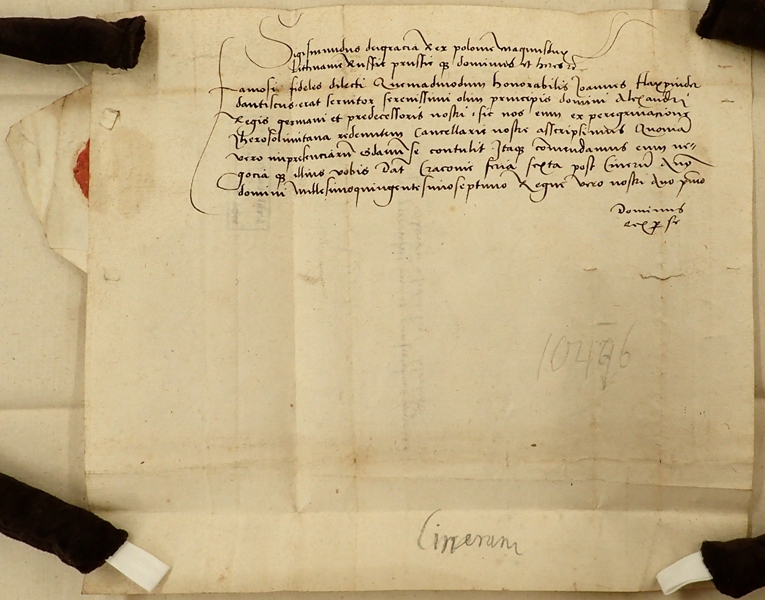 Sigismundus dei gracia Rex polonie magnus dux
Lithuanie Russie prussie qz dominus et heres
famosi fideles dilecti Quemadmodum honorabilis Joannes flaxpinder
dantiscus erat servitor serenissimi olim principis domini Alexandri
Regis germani et predecessoris nostri, sic nos eum ex peregrinatione
Jherosolimitana redeuntem Cancellarie nostre asscripsimus
vero se contulit Itaqz comendamus eum ne=
gocia qz illius vobis Dat Cracovie feria sexta post Cinerum
domini millesimoquingentesimoseptimo Regni vero nostri Ano primo
Dominus
Rex p se
10496
Cinerum